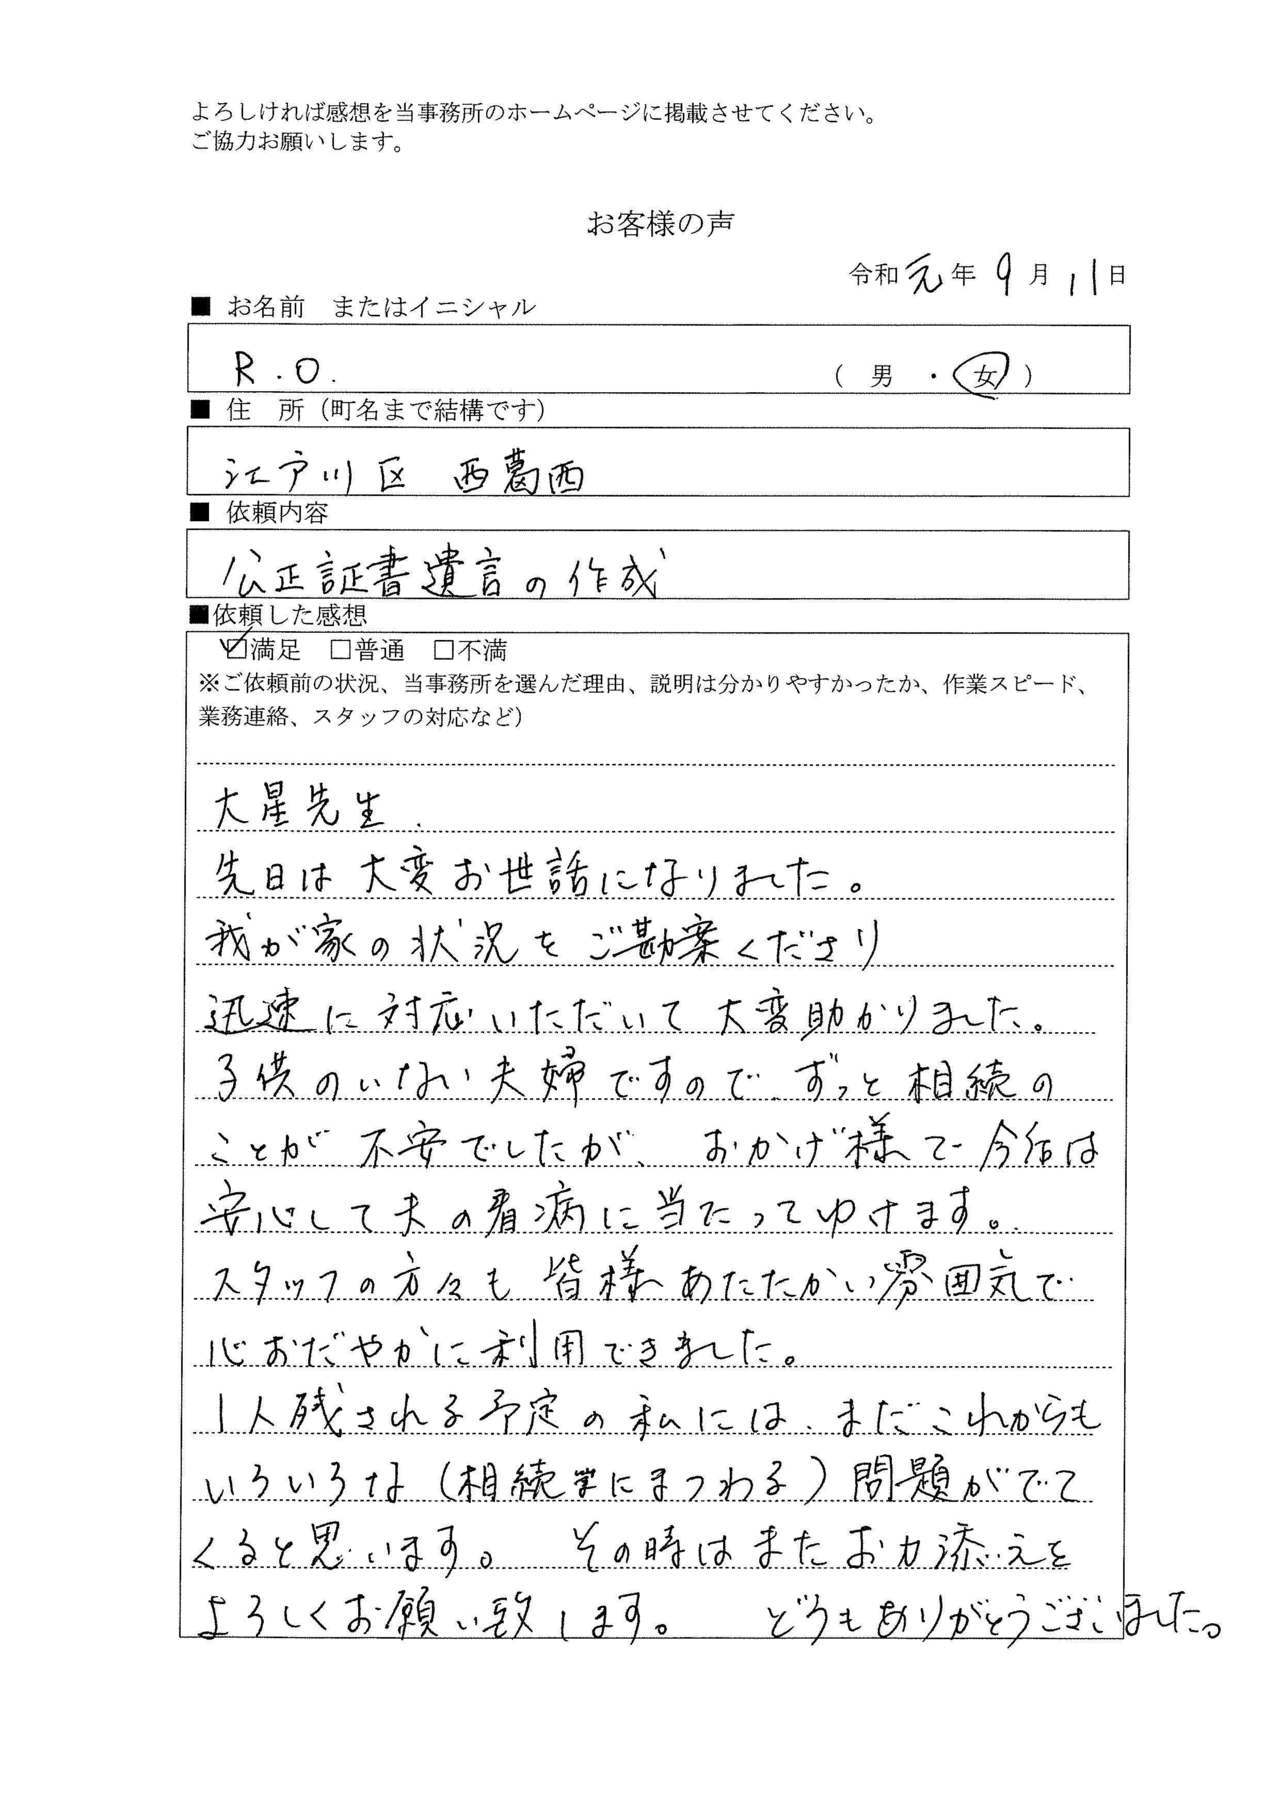 よろしければ感想を当事務所のホームページに掲載させてください。
ご協力お願いします。
お客様の声
令和元年9月11日
■ お名前　またはイニシャル
R.O.　（ 男 ・ 女 ）
■ 住　所（町名まで結構です）
江戸川区 西葛西
■ 依頼内容
公正証書遺言の作成
■依頼した感想
☑満足　□普通　□不満
※ご依頼前の状況、当事務所を選んだ理由、説明は分かりやすかったか、作業スピード、
業務連絡、スタッフの対応など）
大星先生.
先日は大変お世話になりました。
我が家の状況をご勘案くださり
迅速に対応いただいて大変助かりました。
子供のいない夫婦ですので、ずっと相続の
ことが不安でしたが、おかげ様で今後は
安心して夫の看病に当たってゆけます。
スタッフの方々も皆様あたたかい雰囲気で
心おだやかに利用できました。
1人残される予定の私には、まだこれからも
いろいろな（相続にまつわる）問題がでて
くると思います。 その時はまたお力添えを
よろしくお願い致します。 どうもありがとうございました。